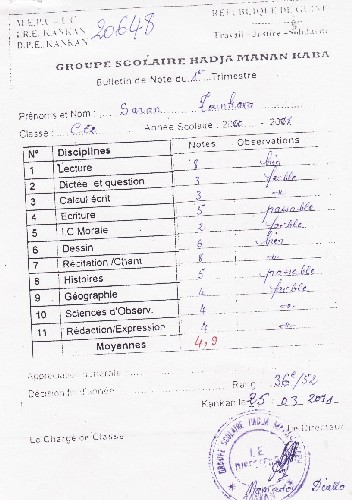 M.E.P.U - E.C
I.R.E. KANKAN
D.P.E. KANKAN
20648
REPUBLIQUE DE GUINEE
Travail - Justice - Solidarité
GROUPE SCOLAIRE HADJA MANAN KABA
Bulletin de Note du 1er Trimestre
Prénoms et Nom : Saran
Classe : CE2 Année Scolaire : 20
N° Disciplines Notes Observations
1 Lecture 8 bien
2 Dictée et question 3 faible
3 Calcul écrit 3 -"-
4 Ecriture 5 passable
5 I.C Morale 2 faible
6 Dessin 6 bien
7 Récitation /Chant 8 -"-
8 Histoires 5 passable
9 Géographie 4 faible
10 Sciences d'Observ. 4 -"-
11 Rédaction/Expression 4 -"-
Moyennes 4,9
Appréciation Générale :
Décision fin d'année Rang : 36e/52
Kankan le 25 03 2011
Le Chargé de Classe Le Directeur
GROUPE SCOLAIRE HADJA MANAN KABA
LE DIRECTEUR
Mamadou Diallo